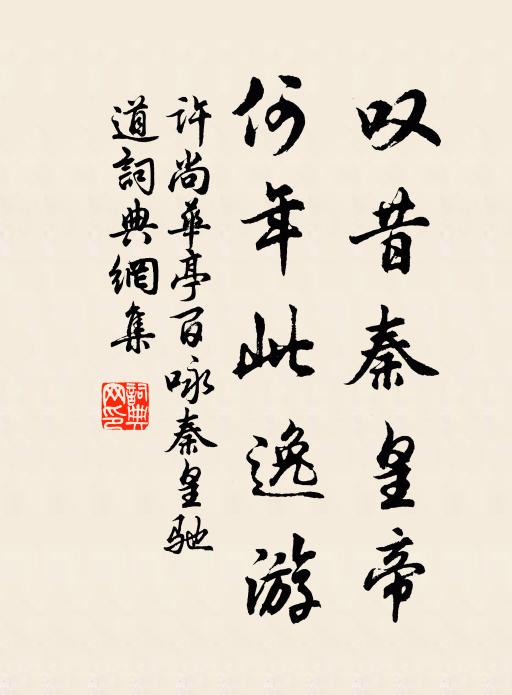 叹昔秦皇帝
何年此逸游
许尚华亭百咏秦皇驰
道詞典網集
詞典网印